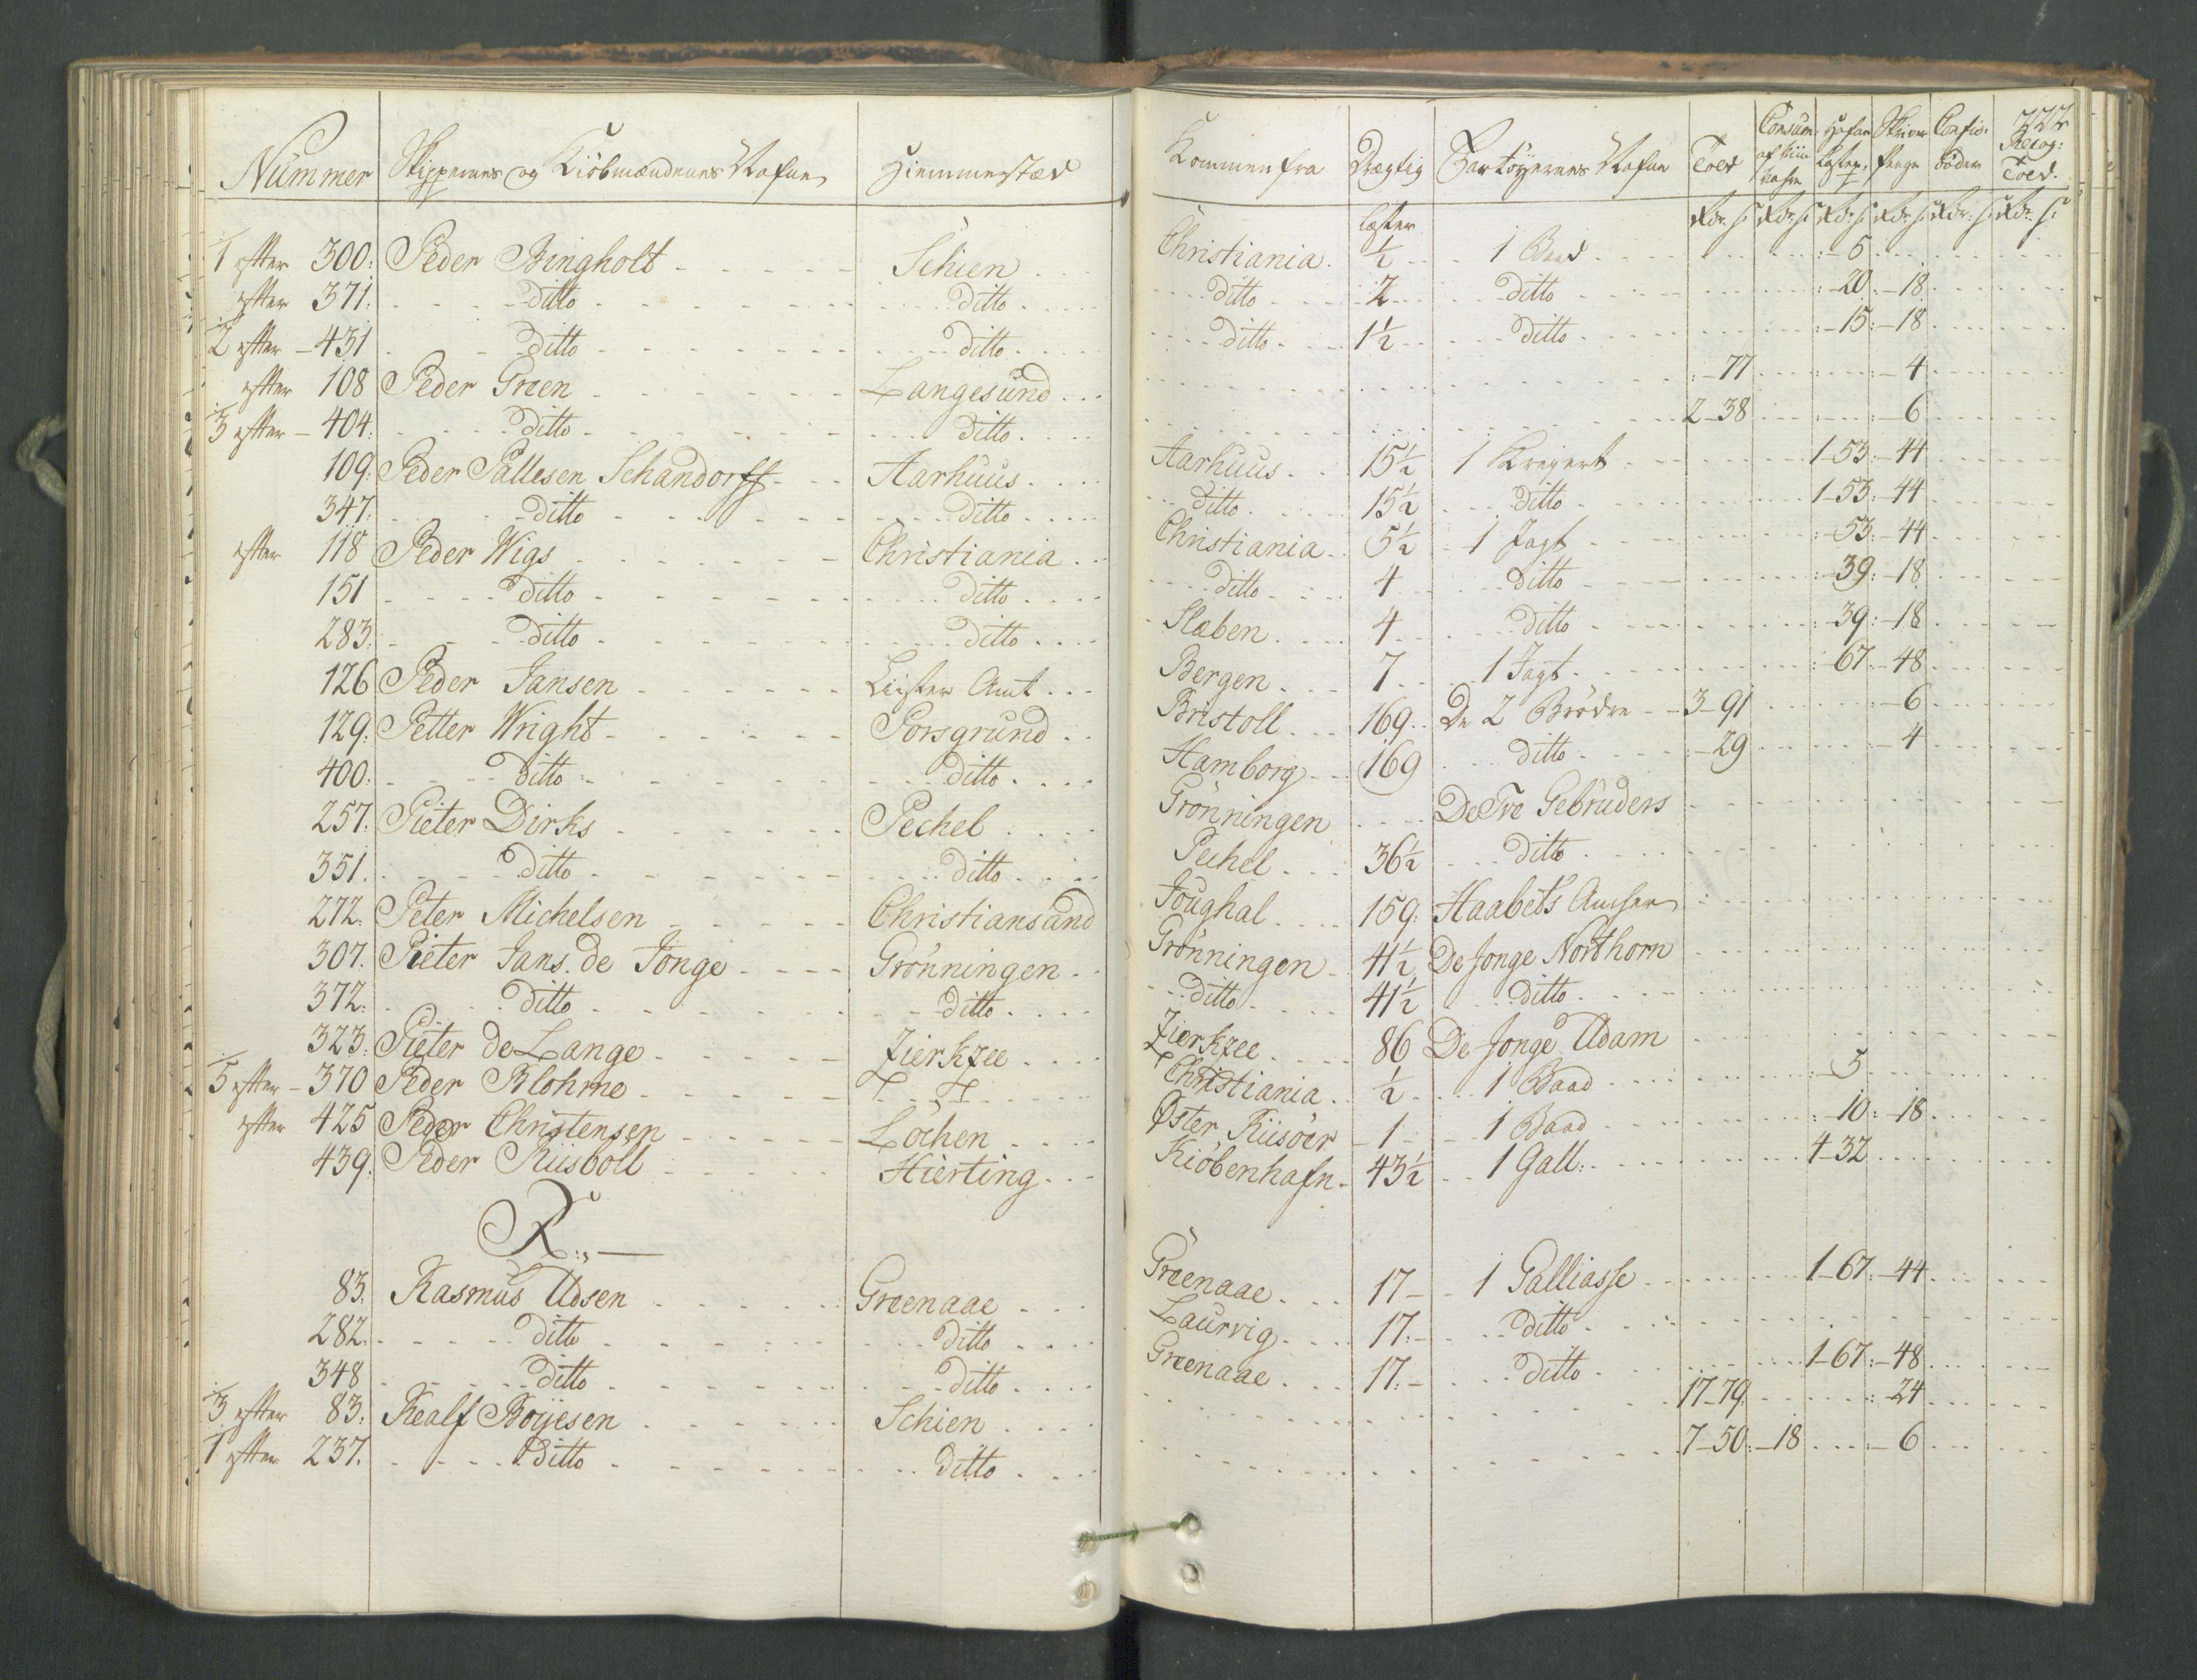 Nummer Skippernes og Kiöbmændenes Nafne Hiemmestæd Kommen fra Drægtig Fartöyernes Nafne Told Consum: Hafne Skriver Confis: Recog:
af Viin Casten penge böder Told.
læster Rdr. s: Rdr. s: Rdr. s: Rdr. s: Rdr. s: Rdr. s:
1 efter 300: Peder Bingholt Schien Christiania ½ 1 Baad 5
efter 371: ditto ditto ditto 2 ditto 20 18
2 efter 431 ditto ditto ditto 1½ ditto 15 18
efter 108 Peder Green Langesund 77 4
3 efter 404: ditto ditto 2 38 6
109: Peder Pallesen Schandorff Aarhuus Aarhuus 15½ 1 Kreyert 1 53 44
347: ditto ditto ditto 15½ ditto 1 53 44
efter 118 Peder Wigs Christiania Christiania 5½ 1 Jagt 53 44
151 ditto ditto ditto 4 ditto 39 18
283: ditto ditto Slæben 4 ditto 39 18
126 Peder Jansen Lister Amt Bergen 7 1 Jagt 67 48
129: Petter Wright Porsgrund Bristoll 169 De 2 Brödre 3 91 6
400: ditto ditto Hamborg 169 ditto 29 4
257: Pieter Dirks Pechel Grönningen De Tve Gebruders
351. ditto ditto Pechel 36½ ditto
272: Peter Michelsen Christiansand Joughal 159: Haabets Ancher
307. Pieter Jans. de Jonge Grönningen Grönningen 41½ De Jonge Northorn
372: ditto ditto ditto 41½ ditto
323: Pieter de Lange Zierkzee Zierkzee 86 De Jonge Adam
5 efter 370 Peder Blohme Christiania ½ 1 Baad 5
efter 425 Peder Christensen Löchen Øster Riisöer 1 1 Baad 10 18
439: Peder Riisböll Hierting Kiöbenhafn 43½ 1 Gall: 4 32
R:,
83. Rasmus Udsen Greenaae Greenaae 17 1 Galliasse 1 67 44
282: ditto ditto Laurvig 17: ditto
348 ditto ditto Greenaae 17: ditto 1 67 48
3 efter 83: Realf Boyesen Schien 17 79 24
1 efter 237. ditto ditto 7 50 18 6